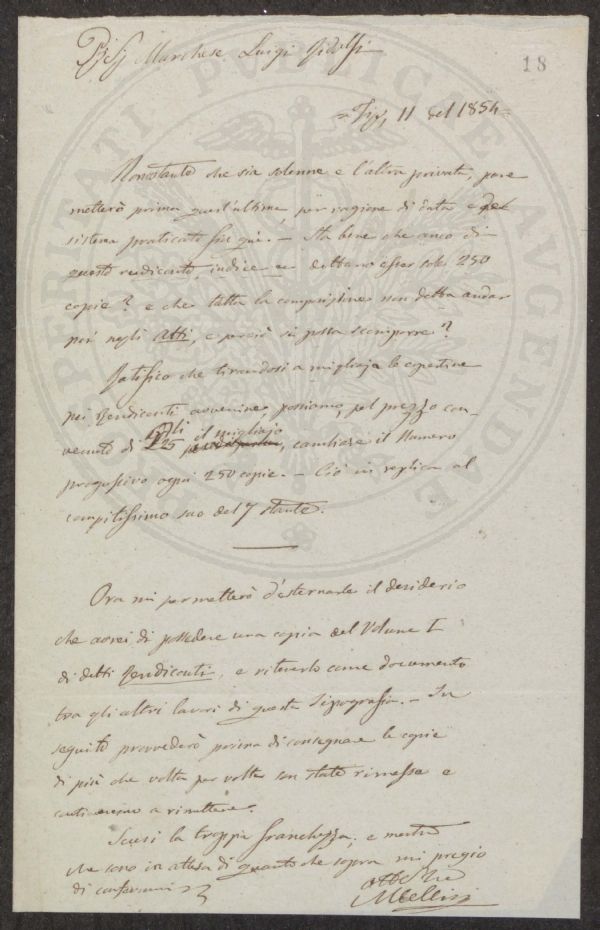 Marchese Luigi Ridolfi
18
11 del 1854
Nonostante che sia solenne e l'altra privata, pure
metterò prima quest'ultima, per ragione di data e pel
sistema praticato fin quì. — Sta bene che anco di
questo rendiconto, indice debbano esser sole 250
copie? e che tutta la composizione non debba andar
poi negli Atti, e perciò si possa scomporre?
Ratifico che tirandosi a migliaja le copertine
pei Rendiconti avvenire, possiamo, pel prezzo con-
venuto di 25 il migliajo, cambiare il Numero
progressivo ogni 250 copie. — Ciò in replica al
compitissimo suo del 7 stante.
Ora mi permetterò d'esternarle il desiderio
che avrei di possedere una copia del Volume I
di detti Rendiconti, e ritenerlo come documento
tra gli altri lavori di questa Tipografia. — In
seguito provvederò prima di consegnare le copie
di più che volta per volta son state rimesse e
continueremo a rimettere.
Scusi la troppa franchezza; e mentre
che sono in attesa di quanto che sopra mi pregio
di confermarmi
Mellini
PROSPERITATI PUBLICAE AUGENDAE